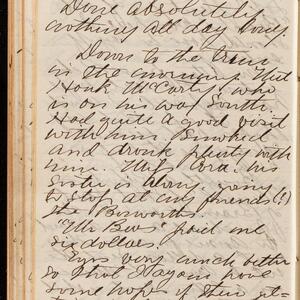 Done absolutely
nothing all day long.
Down to the train
in the morning. Met
Hank McCarty, who
is on his way South.
Had quite a good visit
with him. Smoked
and drank plenty with
him. Miss Cora, his
sister is along, going
to stop at my friends (!)
the Bosworths.
"Mr Bews" paid me
six dollars.
Eyes very much better
so that I again have
some hopes of their